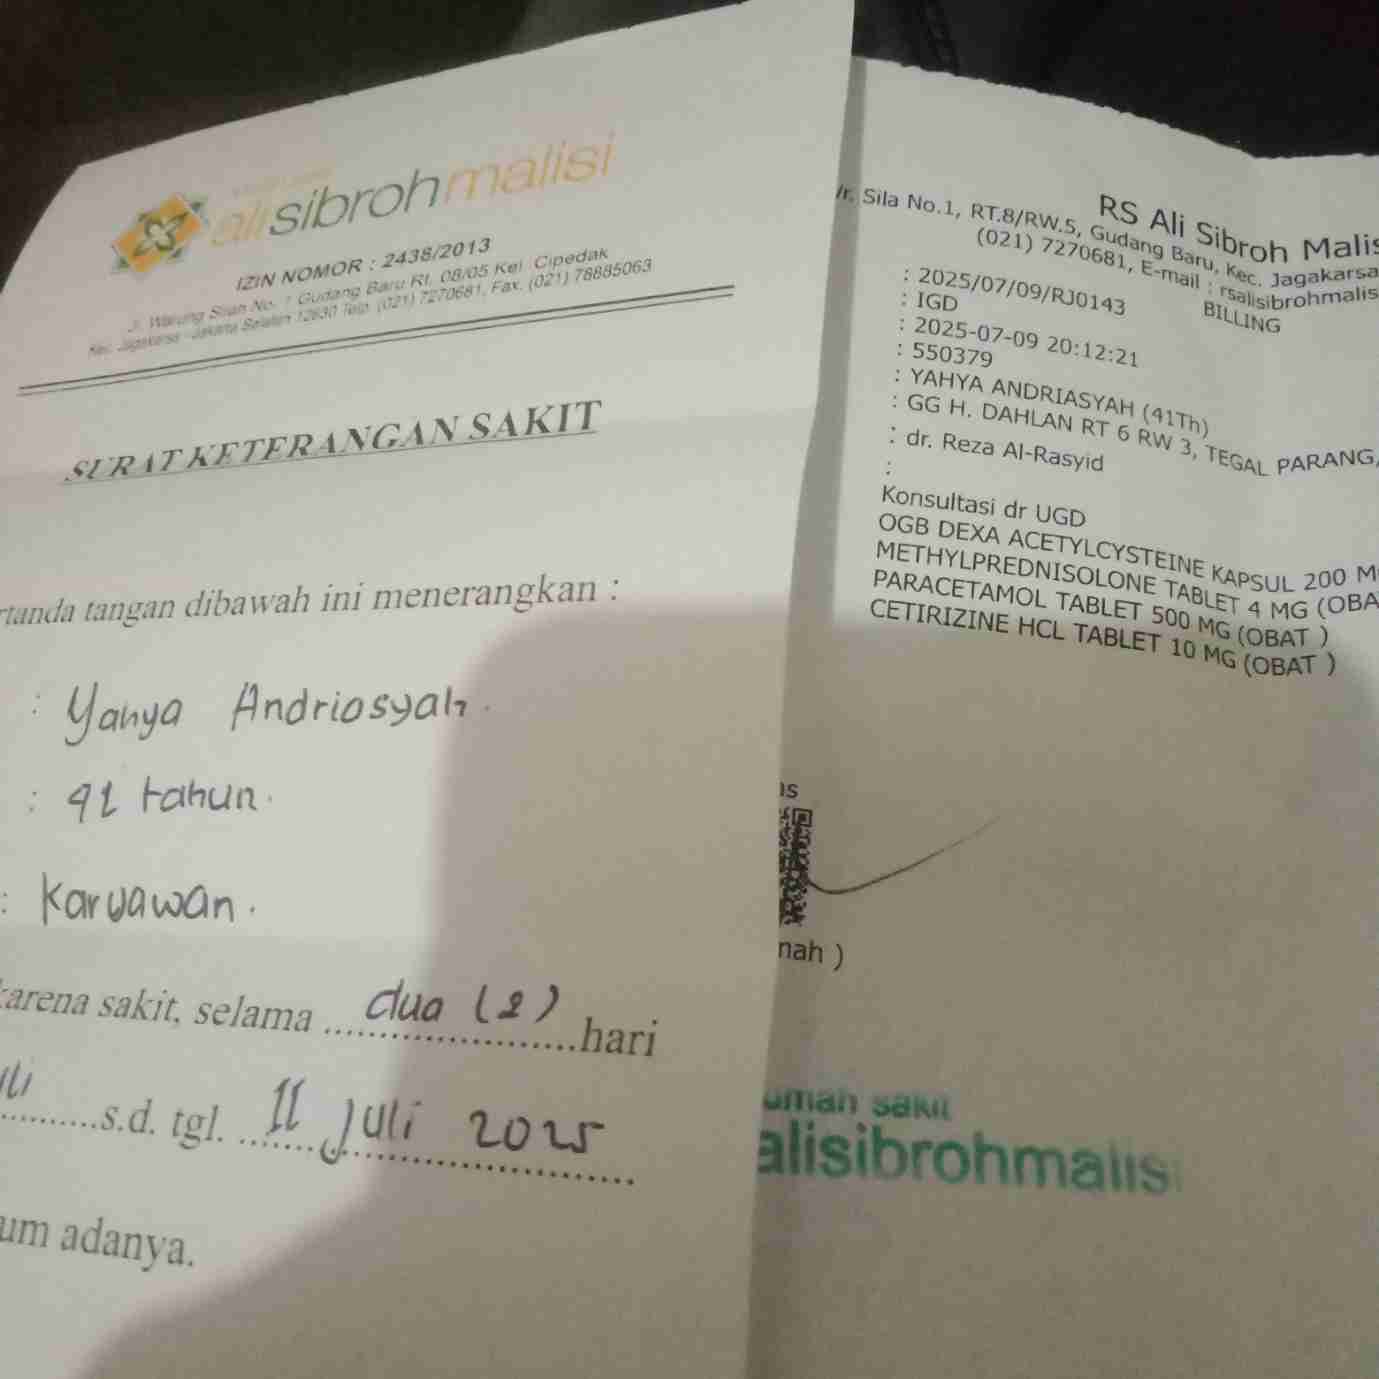 alisibrohmalisi
IZIN NOMOR : 2438/2013
Jl. Warung Silah No. 1 Gudang Baru Rt. 08/05 Kel. Cipedak
Kec. Jagakarsa - Jakarta Selatan 12630 Telp. (021) 7270681, Fax. (021) 78885063
SURAT KETERANGAN SAKIT
rtanda tangan dibawah ini menerangkan :
: Yahya Andriasyah.
: 41 tahun.
: Karyawan.
karena sakit, selama dua (2) hari
uli s.d. tgl. 11 Juli 2025
um adanya.
RS Ali Sibroh Malis
Sila No.1, RT.8/RW.5, Gudang Baru, Kec. Jagakarsa
(021) 7270681, E-mail : rsalisibrohmalis
BILLING
: 2025/07/09/RJ0143
: IGD
: 2025-07-09 20:12:21
: 550379
: YAHYA ANDRIASYAH (41Th)
: GG H. DAHLAN RT 6 RW 3, TEGAL PARANG,
: dr. Reza Al-Rasyid
:
Konsultasi dr UGD
OGB DEXA ACETYLCYSTEINE KAPSUL 200 M
METHYLPREDNISOLONE TABLET 4 MG (OBA
PARACETAMOL TABLET 500 MG (OBAT )
CETIRIZINE HCL TABLET 10 MG (OBAT )
as
nah )
umah sakit
alisibrohmalisi